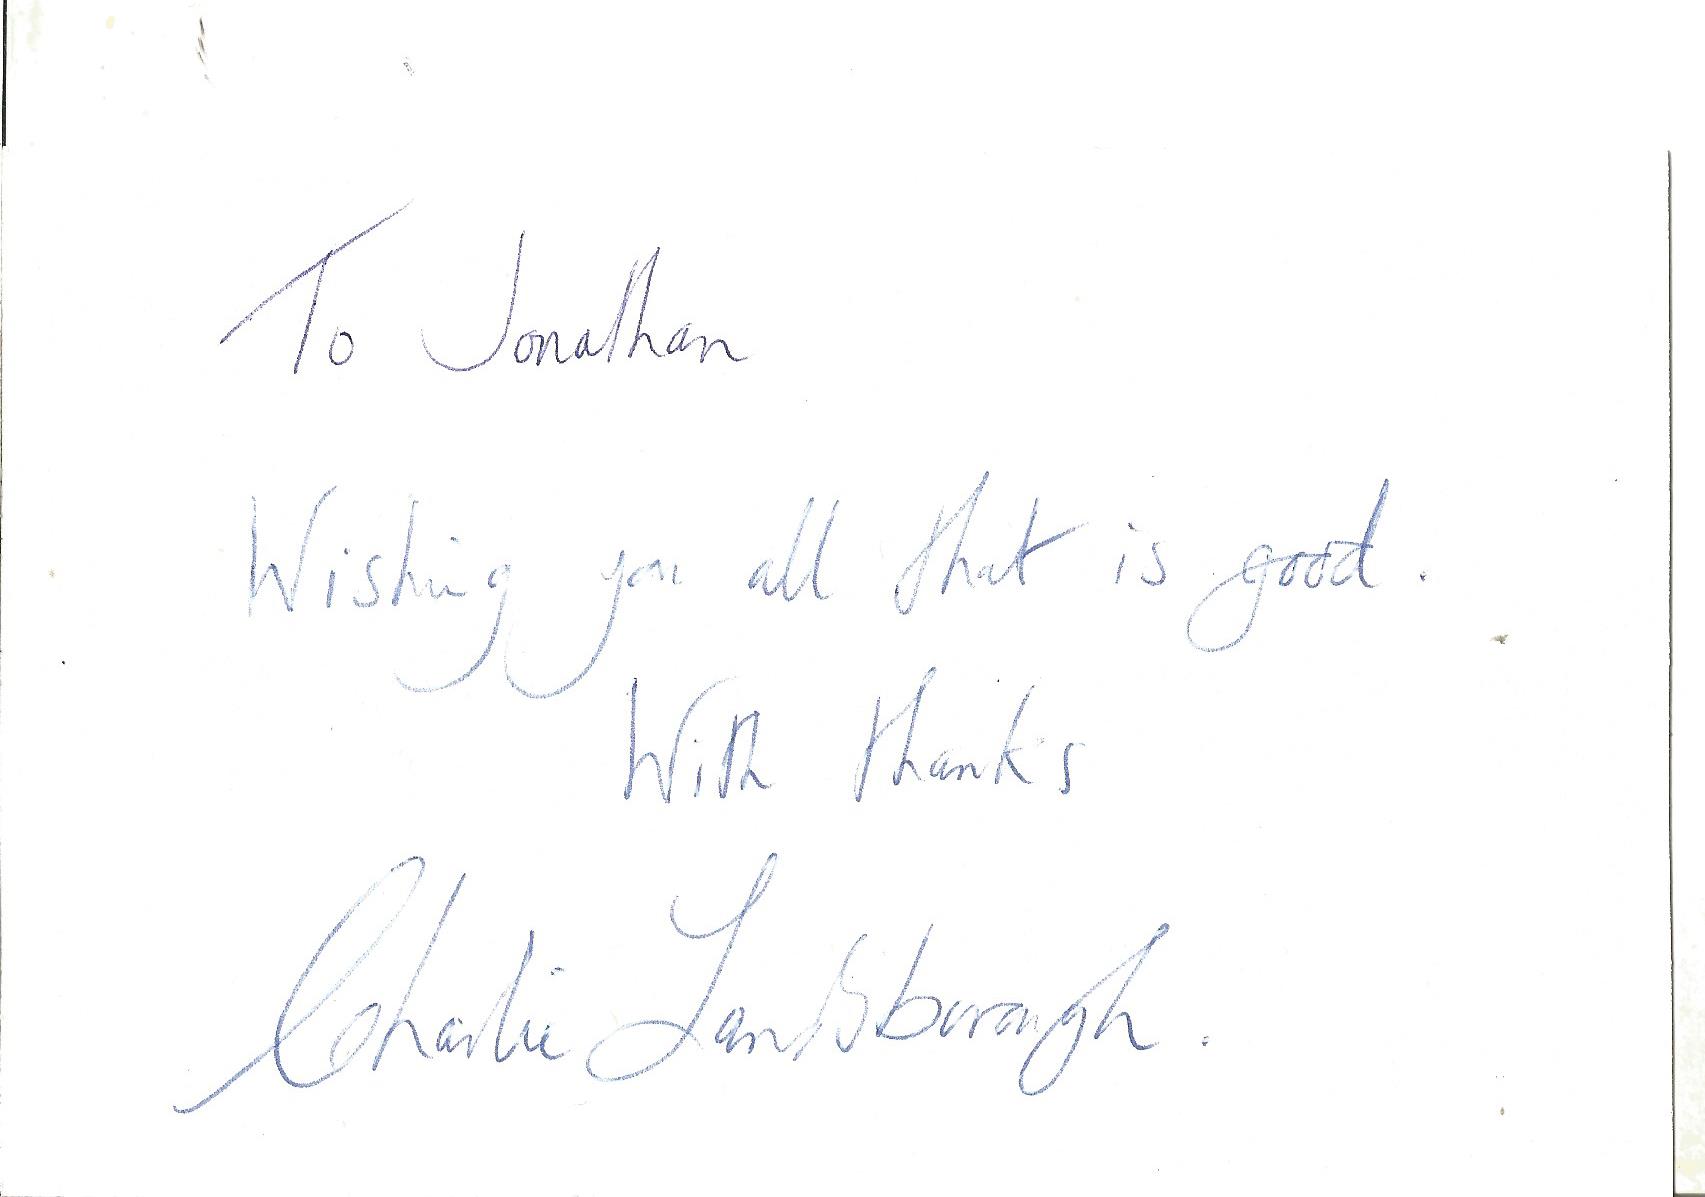 To Jonathan
Wishing you all that is good.
With thanks
Charlie Landsborough.